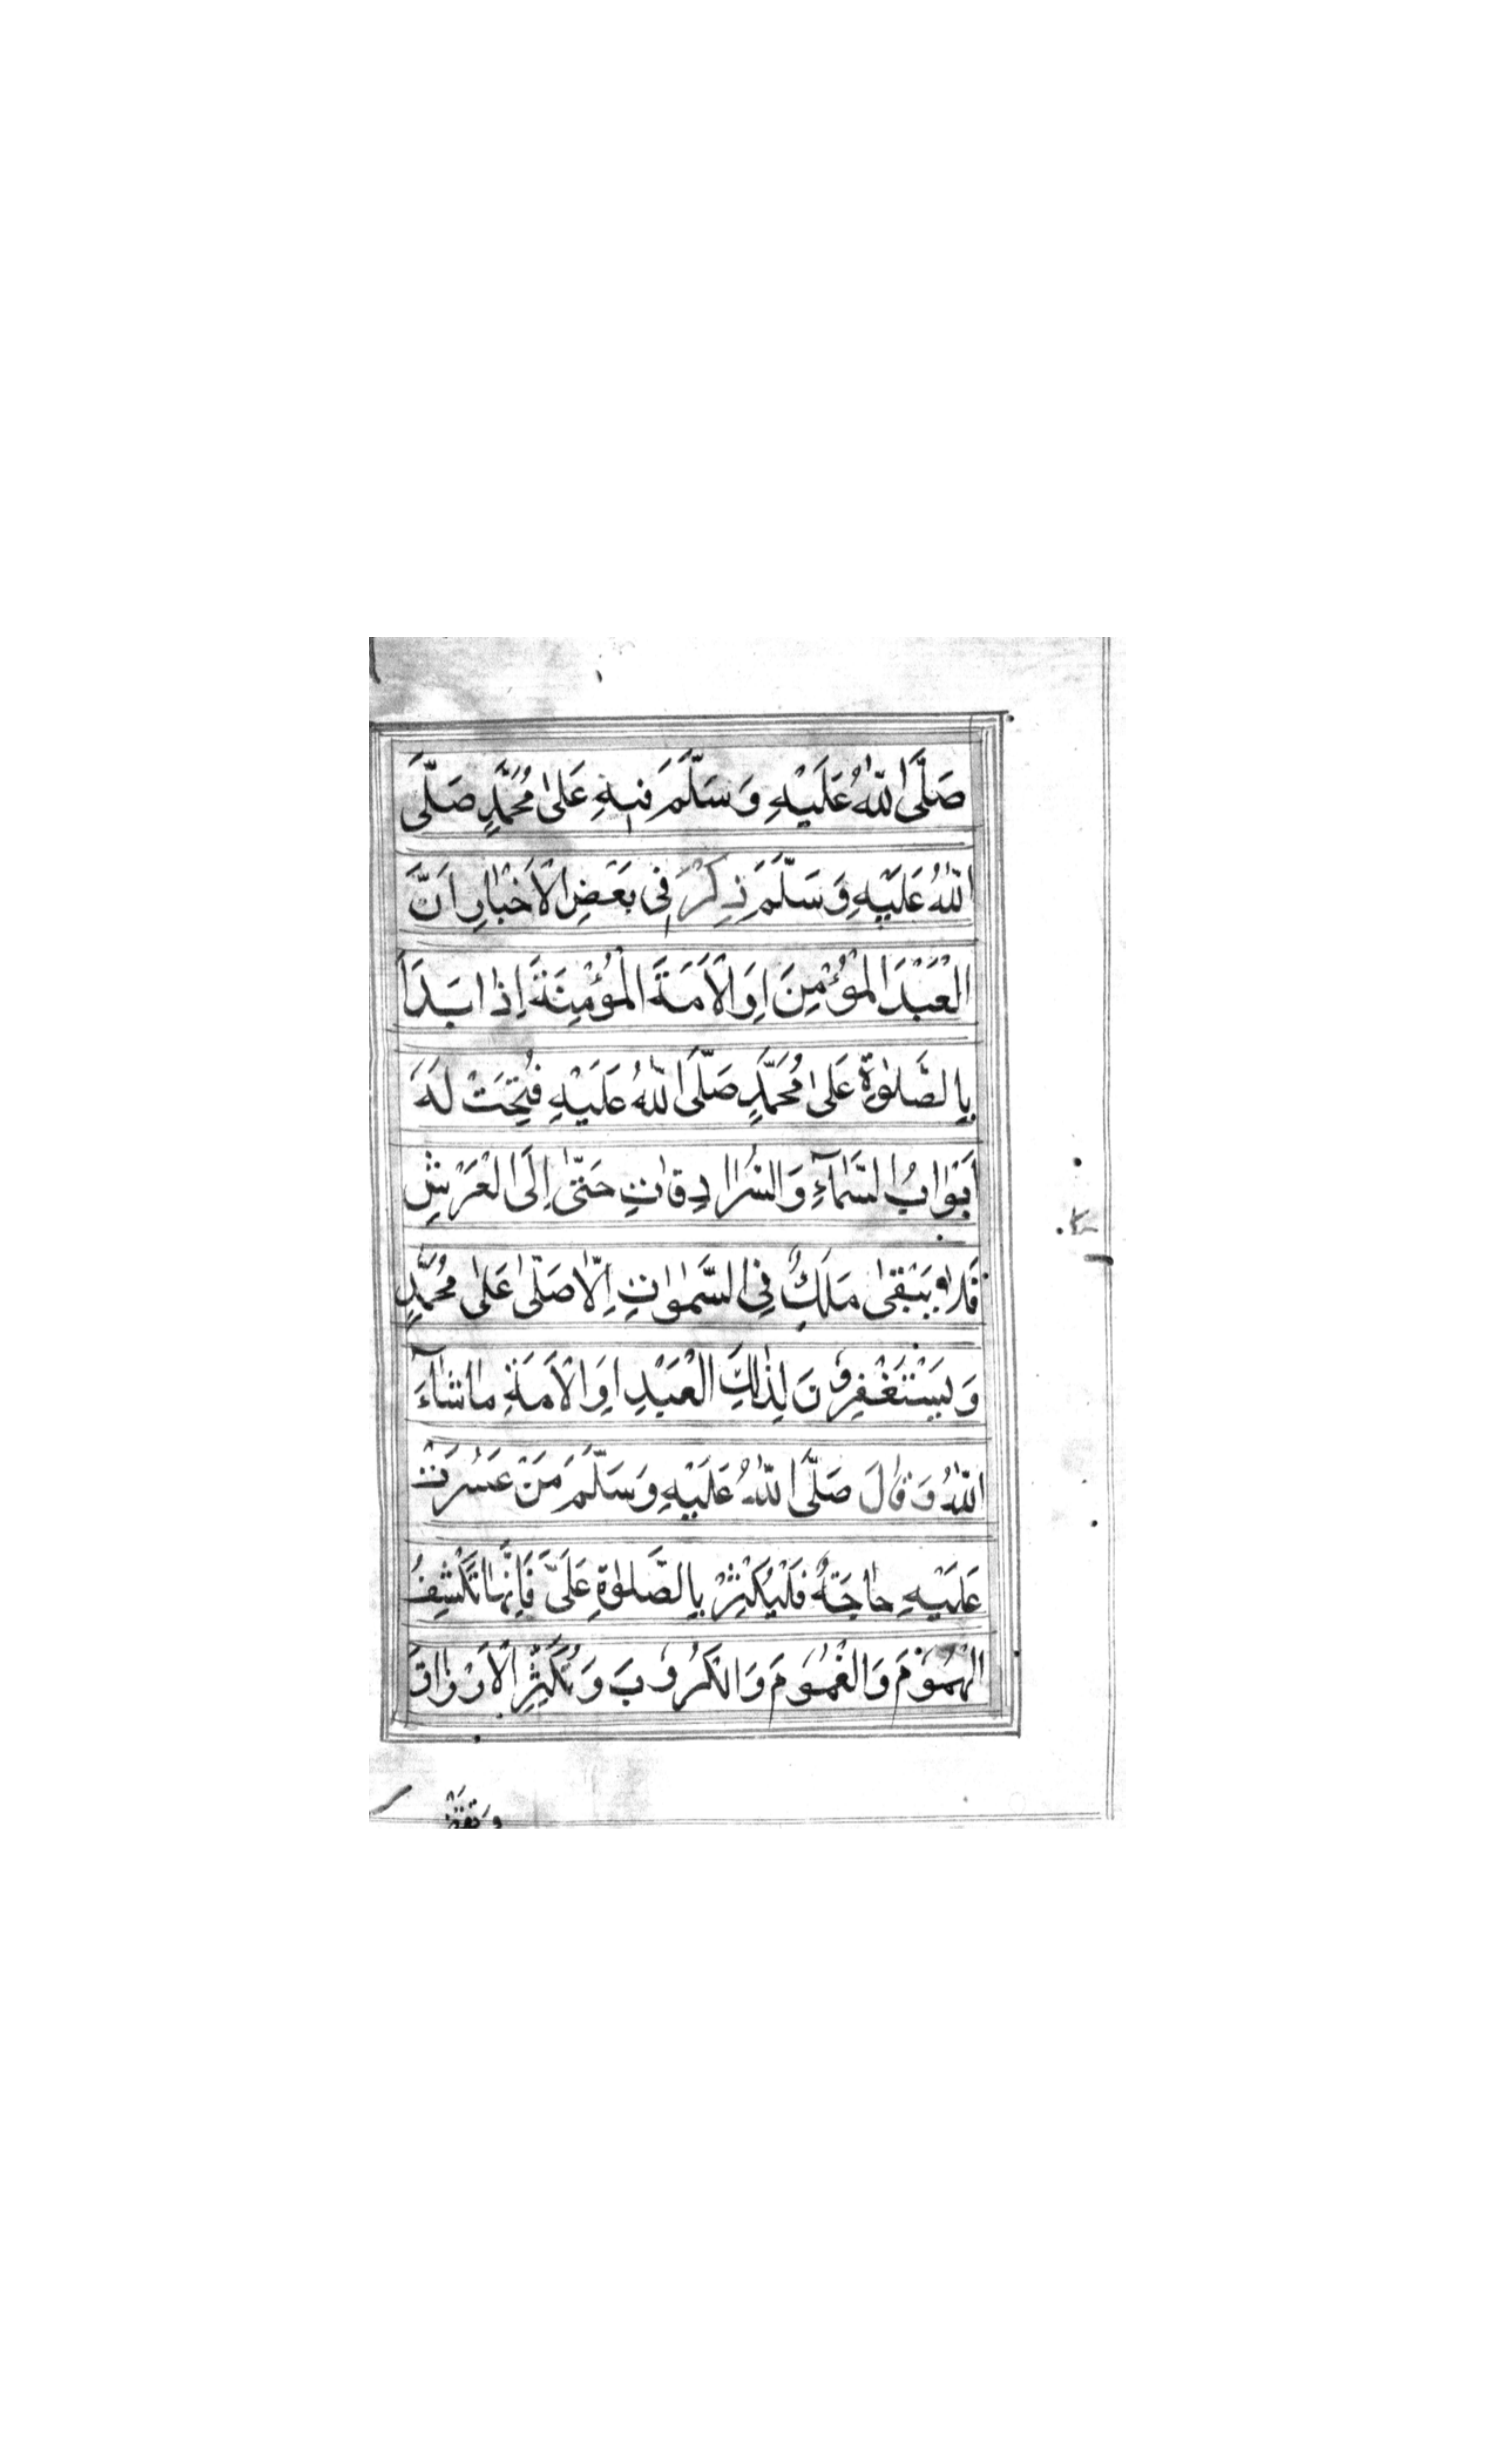 صَلَّى اللّٰهُ عَلَيْهِ وَسَلَّمَ فِيهِ عَلىٰ مُحَمَّدٍ صَلَّى
اللّٰهُ عَلَيْهِ وَسَلَّمَ ذِكْرَ فِى بَعْضِ الْاَخْبَارِ اَنَّ
الْعَبْدَ الْمُؤْمِنَ اَوِ الْاَمَةَ الْمُؤْمِنَةَ اِذَا بَدَاَ
بِالصَّلٰوةِ عَلىٰ مُحَمَّدٍ صَلَّى اللّٰهُ عَلَيْهِ فُتِحَتْ لَهُ
اَبْوَابُ السَّمَآءِ وَالسُّرَادِقَاتِ حَتّٰى اِلَى الْعَرْشِ
فَلَا يَبْقىٰ مَلَكٌ فِى السَّمٰوَاتِ اِلَّا صَلّٰى عَلىٰ مُحَمَّدٍ
وَيَسْتَغْفِرُونَ لِذٰلِكَ الْعَبْدِ اَوِ الْاَمَةِ مَا شَآءَ
اللّٰهُ وَقَالَ صَلَّى اللّٰهُ عَلَيْهِ وَسَلَّمَ مَنْ عَسُرَتْ
عَلَيْهِ حَاجَةٌ فَلْيُكْثِرْ بِالصَّلٰوةِ عَلَىَّ فَاِنَّهَا تَكْشِفُ
الْهُمُوْمَ وَالْغُمُوْمَ وَالْكُرُوْبَ وَتُكَثِّرُ الْاَرْزَاقَ